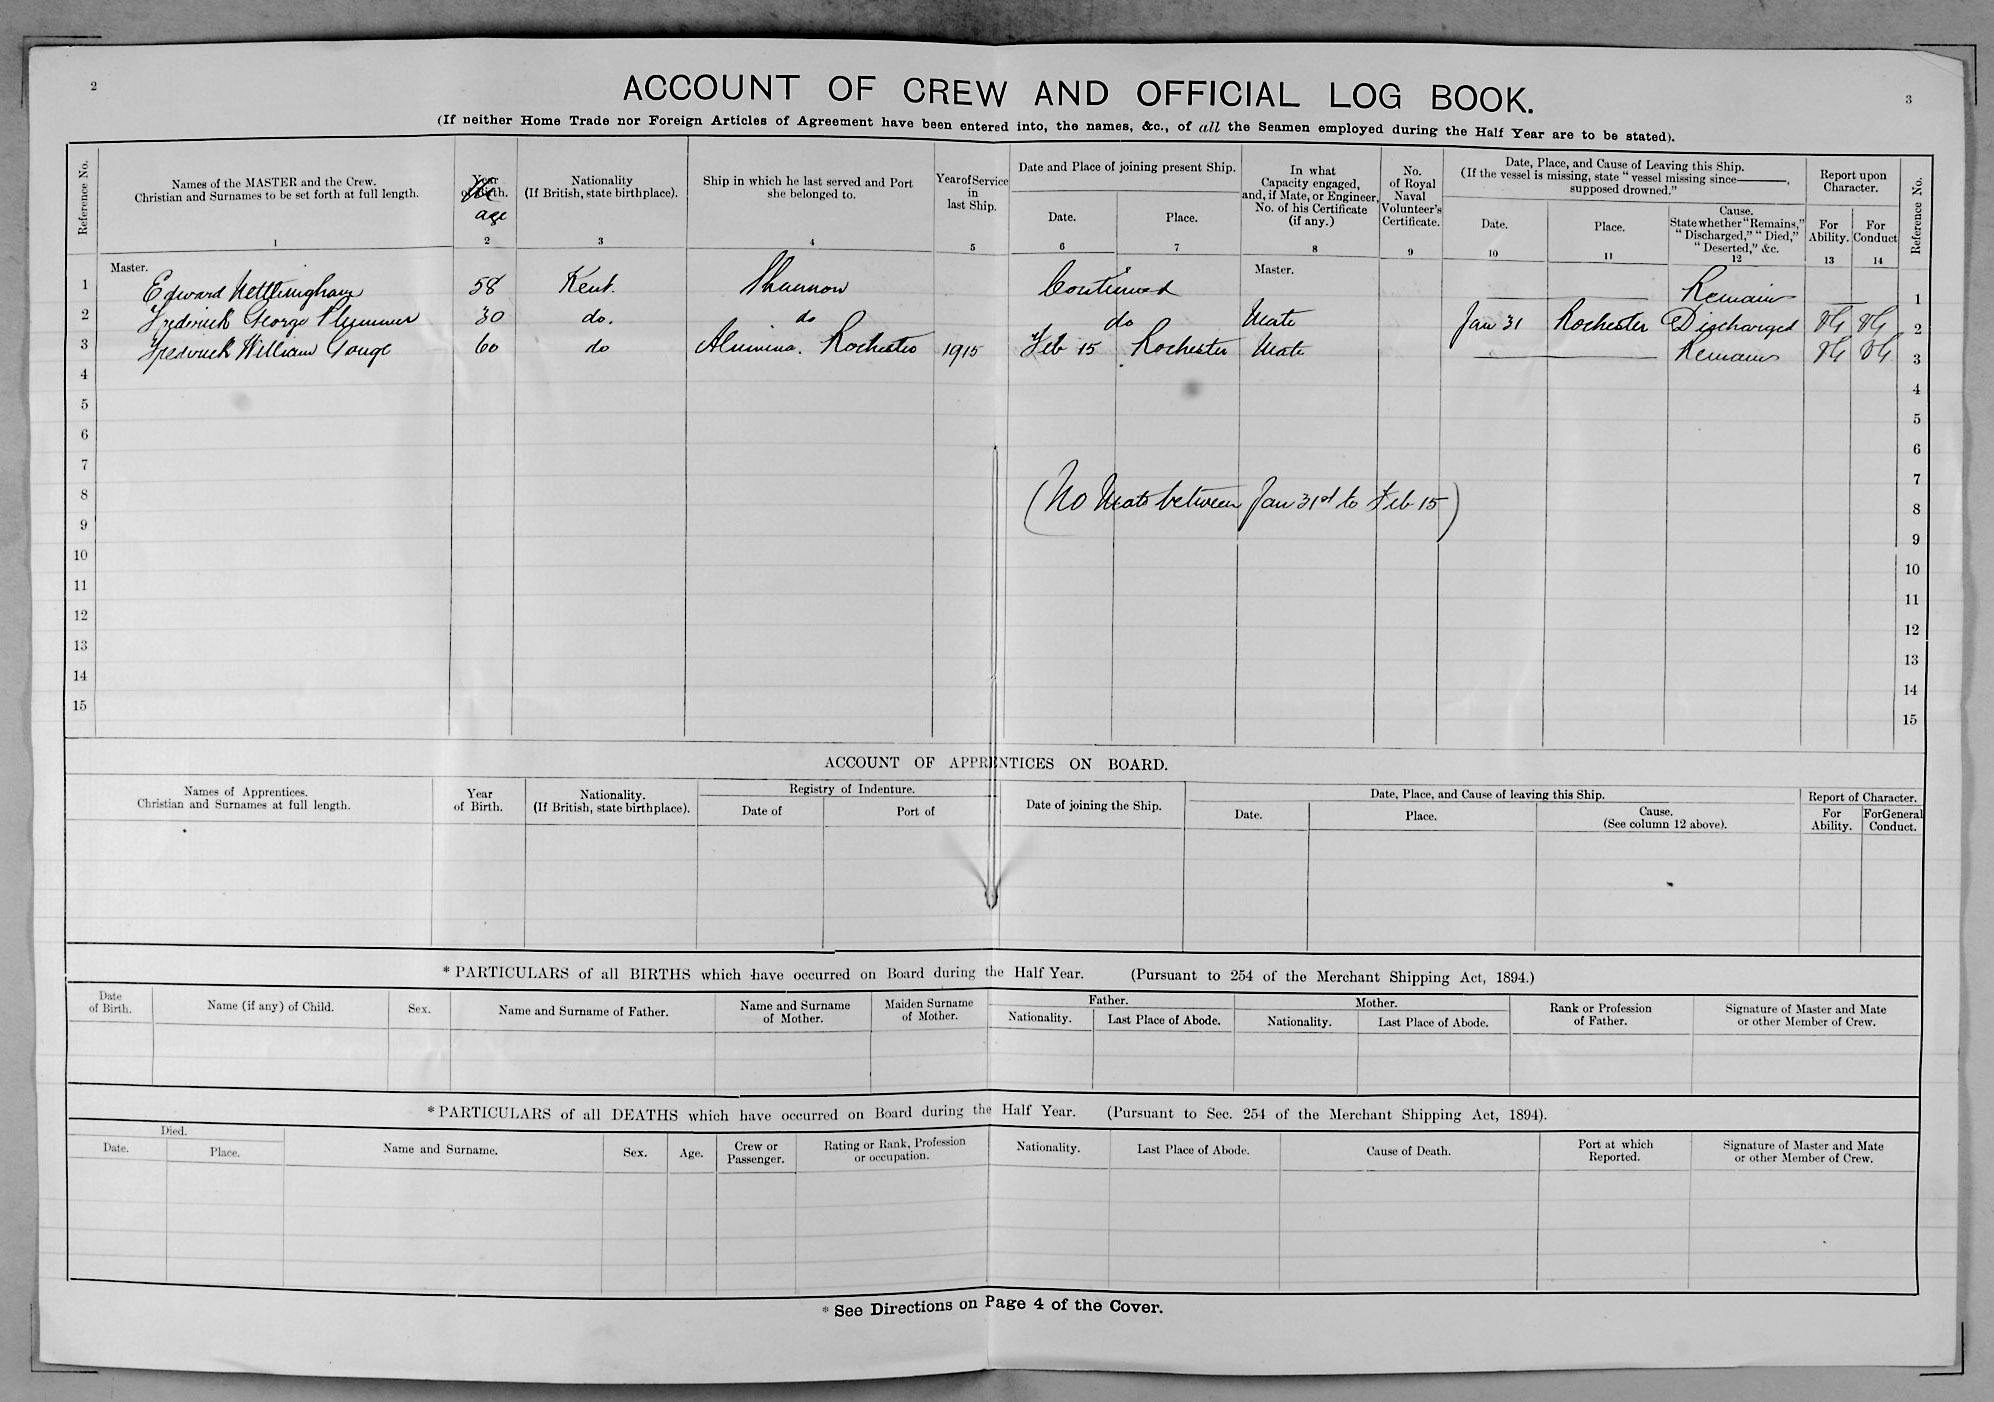 2
ACCOUNT OF CREW AND OFFICIAL LOG BOOK.
3
(If neither Home Trade nor Foreign Articles of Agreement have been entered into, the names, &c., of all the Seamen employed during the Half Year are to be stated).
Reference No.
Names of the MASTER and the Crew.
Christian and Surnames to be set forth at full length.
1
Year
of Birth.
age
2
Nationality
(If British, state birthplace).
3
Ship in which he last served and Port
she belonged to.
4
Year of Service
in
last Ship.
5
Date and Place of joining present Ship.
Date.
6
Place.
7
In what
Capacity engaged,
and, if Mate, or Engineer,
No. of his Certificate
(if any.)
8
No.
of Royal
Naval
Volunteer's
Certificate.
9
Date, Place, and Cause of Leaving this Ship.
(If the vessel is missing, state "vessel missing since———,
supposed drowned."
Date.
10
Place.
11
Cause.
State whether "Remains,"
"Discharged," "Died,"
"Deserted," &c.
12
Report upon
Character.
For
Ability.
13
For
Conduct
14
Reference No.
Master.
Master.
1 Edward Nettlingham 58 Kent. Shannon Continued Remains 1
2 Frederick George Plummer 30 do. do do Mate Jan 31 Rochester Discharged VG VG 2
3 Frederick William Gouge 60 do Alumina. Rochester 1915 Feb 15 Rochester Mate Remains VG VG 3
4 4
5 5
6 6
7 7
8 (No Mate between Jan 31st to Feb 15) 8
9 9
10 10
11 11
12 12
13 13
14 14
15 15
ACCOUNT OF APPRENTICES ON BOARD.
Names of Apprentices.
Christian and Surnames at full length.
Year
of Birth.
Nationality.
(If British, state birthplace).
Registry of Indenture.
Date of
Port of
Date of joining the Ship.
Date, Place, and Cause of leaving this Ship.
Date.
Place.
Cause.
(See column 12 above).
Report of Character.
For
Ability.
For General
Conduct.
* PARTICULARS of all BIRTHS which have occurred on Board during the Half Year. (Pursuant to 254 of the Merchant Shipping Act, 1894.)
Date
of Birth.
Name (if any) of Child.
Sex.
Name and Surname of Father.
Name and Surname
of Mother.
Maiden Surname
of Mother.
Father.
Nationality.
Last Place of Abode.
Mother.
Nationality.
Last Place of Abode.
Rank or Profession
of Father.
Signature of Master and Mate
or other Member of Crew.
* PARTICULARS of all DEATHS which have occurred on Board during the Half Year. (Pursuant to Sec. 254 of the Merchant Shipping Act, 1894).
Died.
Date.
Place.
Name and Surname.
Sex.
Age.
Crew or
Passenger.
Rating or Rank, Profession
or occupation.
Nationality.
Last Place of Abode.
Cause of Death.
Port at which
Reported.
Signature of Master and Mate
or other Member of Crew.
* See Directions on Page 4 of the Cover.